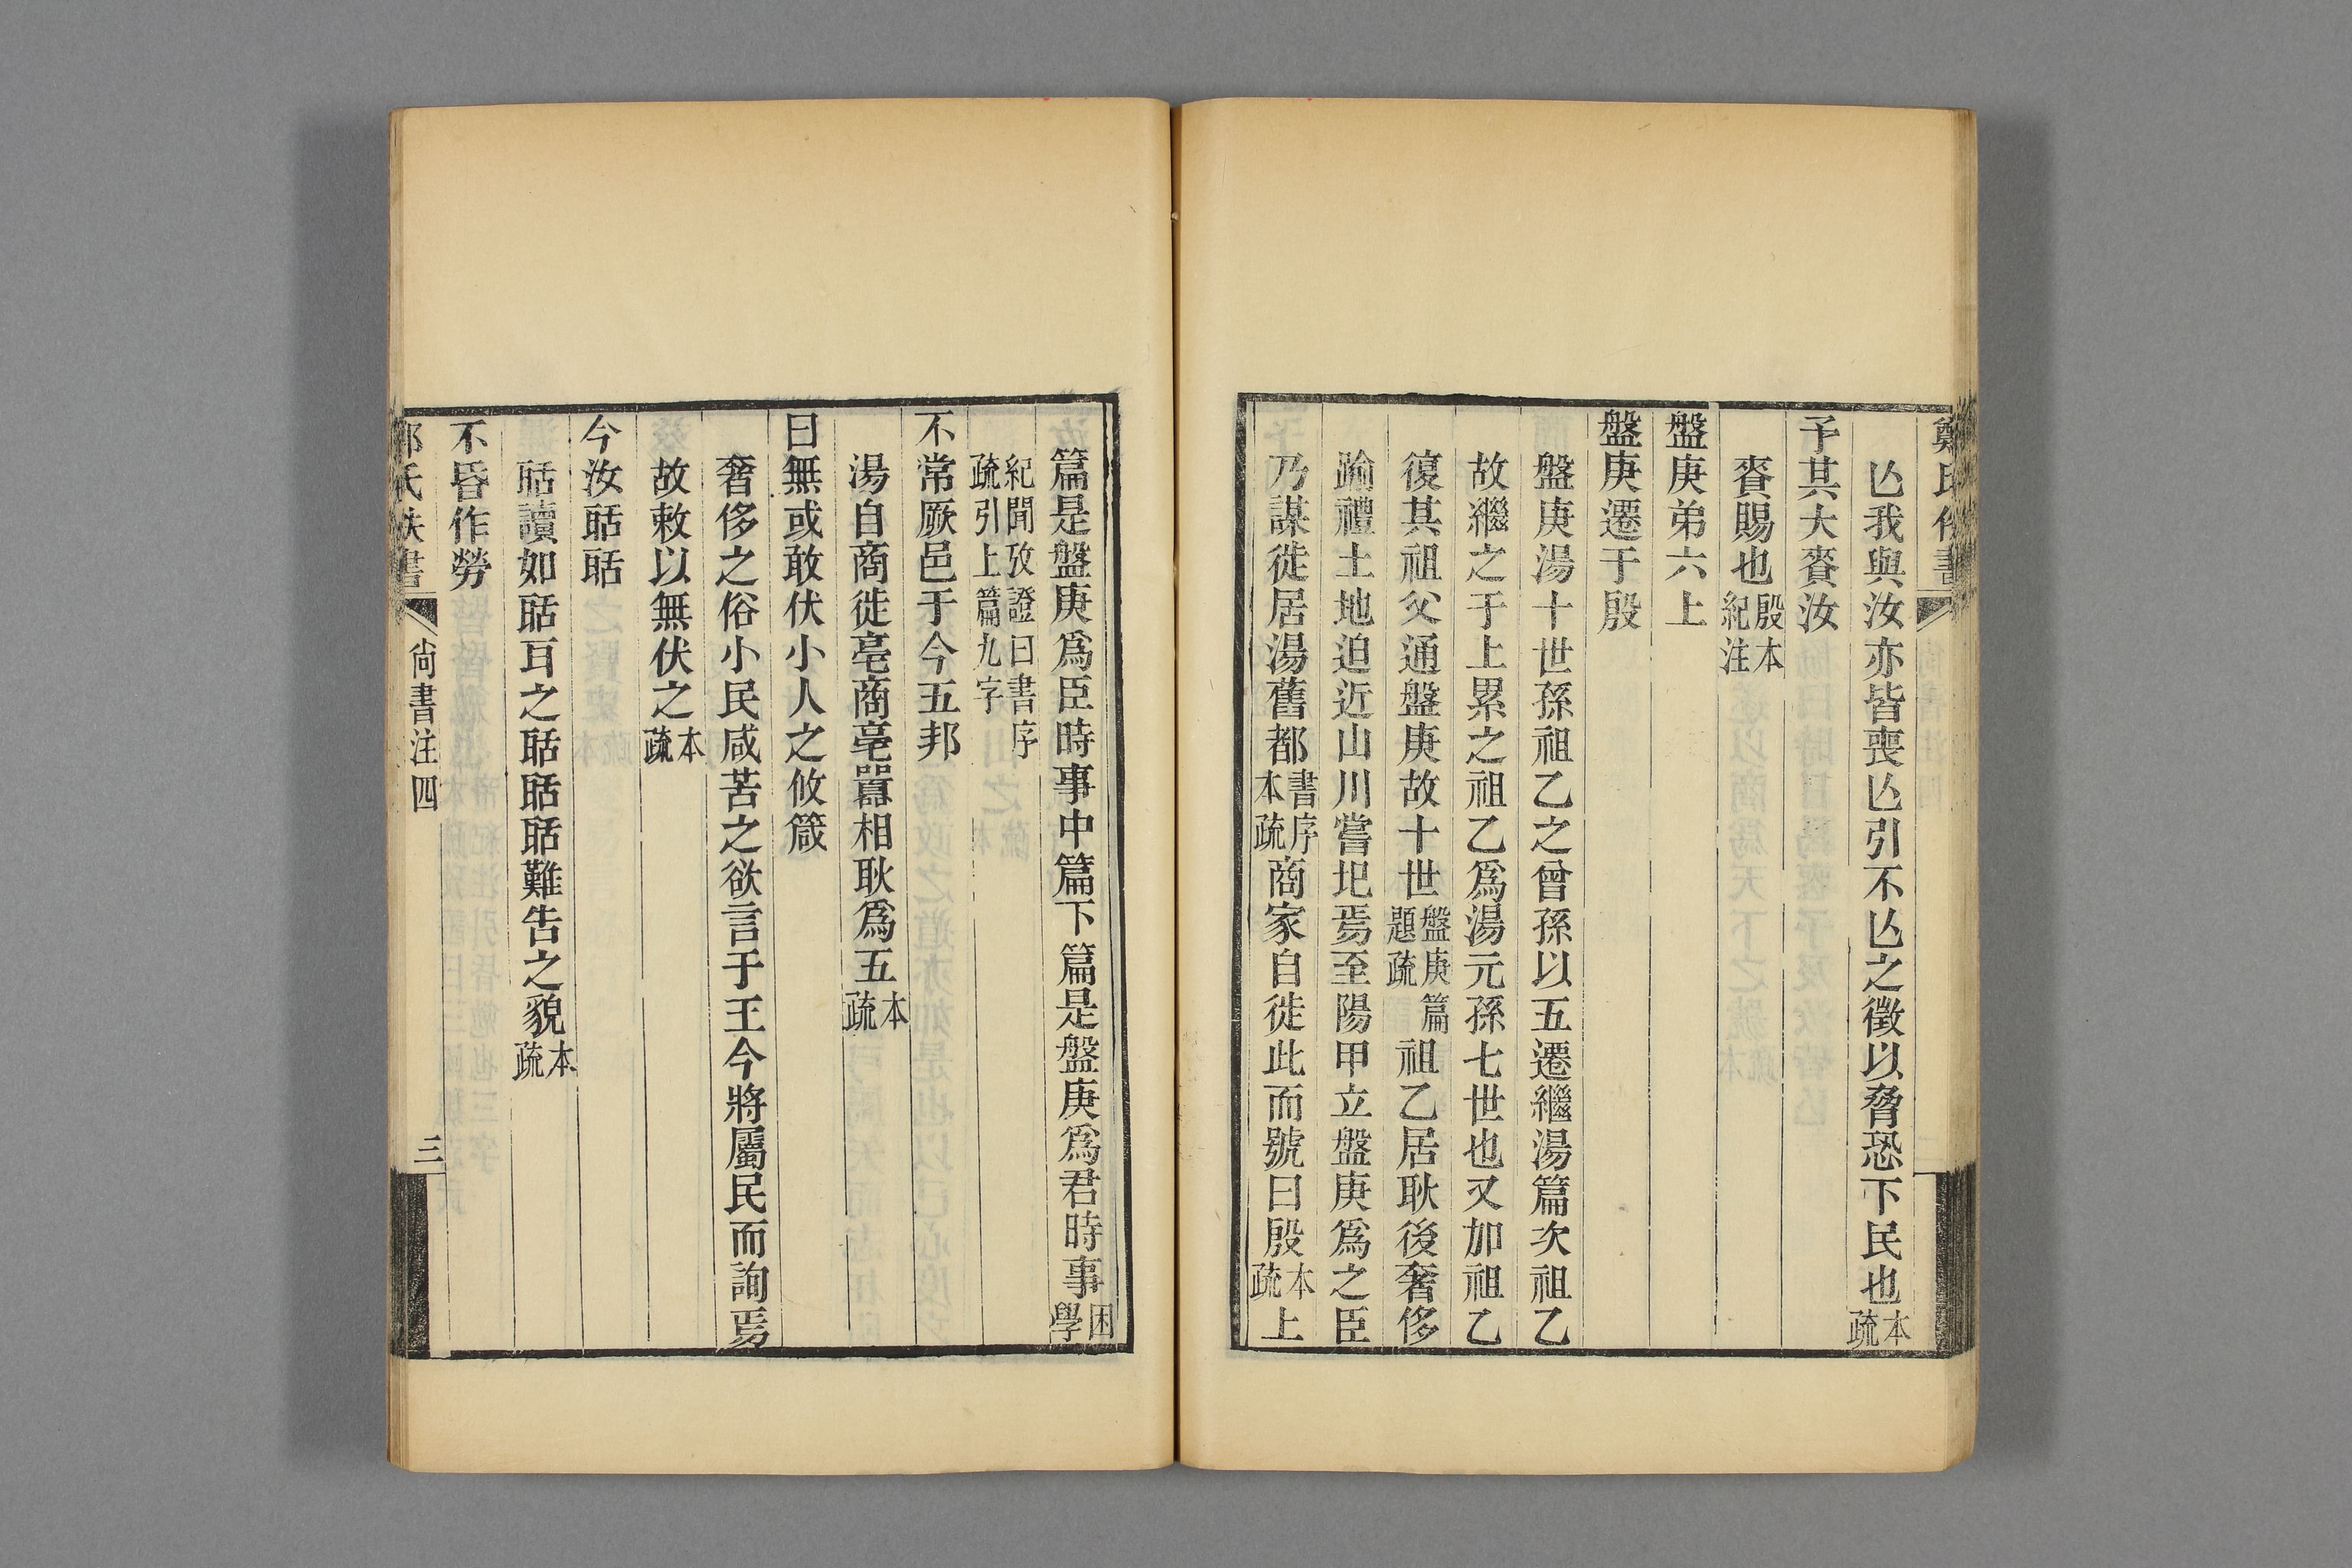 亾我與汝亦皆喪亾引不亾之徵以脅恐下民也本疏
予其大賚汝
賚賜也殷本紀注
盤庚弟六上
盤庚遷于殷
盤庚湯十世孫祖乙之曾孫以五遷繼湯篇次祖乙
故繼之于上累之祖乙爲湯元孫七世也又加祖乙
復其祖父通盤庚故十世盤庚篇題疏祖乙居耿後奢侈
踰禮土地迫近山川嘗圯焉至陽甲立盤庚爲之臣
乃謀徙居湯舊都書序本疏商家自徙此而號曰殷本疏上
篇是盤庚爲臣時事中篇下篇是盤庚爲君時事困學
紀聞攷證曰書序疏引上篇九字
不常厥邑于今五邦
湯自商徙亳商亳嚻相耿爲五本疏
曰無或敢伏小人之攸箴
奢侈之俗小民咸苦之欲言于王今將屬民而詢焉
故敕以無伏之本疏
今汝聒聒
聒讀如聒耳之聒聒聒難告之貌本疏
不昏作勞
尙書注四
三